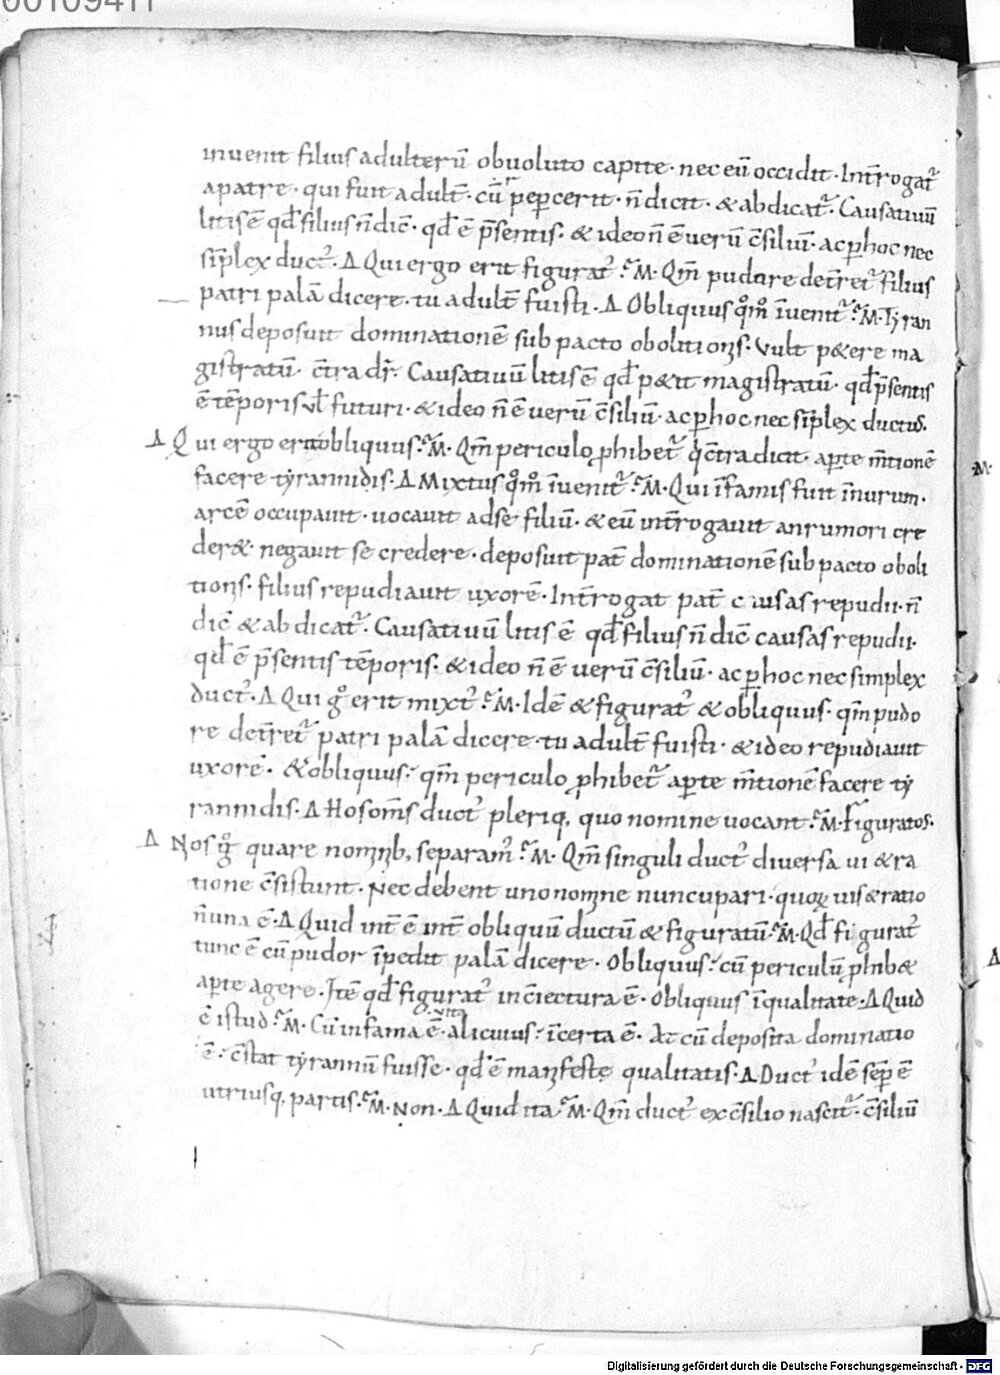 00109411
inuenit filius adulterū obuoluto capite · nec eū occidit · Int̄rogat᷑
a patre · qui fuit adult̄ · cū pepercerit · n̄ dicit · & abdicat᷑ · Causatiuū
litis ē qđ filius n̄ dic̄ · qđ ē p̄sentis · & ideo n̄ ē uerū c̄siliū · ac ꝑ hoc nec
simplex duct᷒ · Δ Qui ergo erit figurat᷒ · M · Qm̄ pudore det̄ret᷑ filius
patri palā dicere · tu adult̄ fuisti · Δ Obliquus qͦmͦ īuenit᷑ · M · Tyran
nus deposuit dominationē sub pacto obolitionis · Vult p&ere ma
gistratū · c̄tra dr̄ · Causatiuū litis ē qđ p&it magistratū · qđ p̄sentis
ē tēporis ul̄ futuri · & ideo n̄ ē uerū c̄siliū · ac ꝑ hoc nec simplex ductus ·
Δ Qui ergo erit obliquus · M · Qm̄ periculo ꝓhibet᷑ q c̄tradicit · aꝑte m̄tionē
facere tyrannidis · Δ Mixtus qͦmͦ īuenit᷑ · M · Qui īfamis fuit ī nurum ·
arcē occupauit · uocauit ad se filiū · & eū int̄rogauit an rumori cre
der& · negauit se credere · deposuit pat̄ dominationē sub pacto oboli
tionis · filius repudiauit uxorē · Int̄rogat pat̄ causas repudii · n̄
dic̄ & abdicat᷑ · Causatiuū litis ē qđ filius n̄ dic̄ causas repudii ·
qđ ē p̄sentis tēporis · & ideo n̄ ē uerū c̄siliū · ac ꝑ hoc nec simplex
duct᷒ · Δ Qui gͦ erit mixt᷒ · M · Idē & figurat᷒ & obliquus · qm̄ pudo
re det̄ret᷑ patri palā dicere · tu adult̄ fuisti · & ideo repudiauit
uxorē · & obliquus · qm̄ periculo ꝓhibet᷑ aꝑte m̄tionē facere ty
rannidis · Δ Hos om̄s duct᷒ pleriq; quo nomine uocant · M · Figuratos ·
Δ Nos gͦ quare nominib; separam᷒ · M · Qm̄ singuli duct᷒ diuersa ui & ra
tione c̄sistunt · Nec debent uno nomine nuncupari · quoꝝ uis & ratio
n̄ una ē · Δ Quid int̄ē int̄ obliquū ductū & figuratū · M · Qđ figurat᷒
tunc ē cū pudor īpedit palā dicere · Obliquus · cū periculū ꝓhib&
aꝑte agere · Itē qđ figurat᷒ in c̄iectura ē · Obliquus ī qualitate · Δ Quid
ē istud · M · Cū infama ē uita alicuius · īcerta ē · At cū deposita dominatio
ē · c̄stat tyrannū fuisse · qđ ē manifeste qualitatis · Δ Duct᷒ idē semꝑ ē
utriusq; partis · M · Non · Δ Quid ita · M · Qm̄ duct᷒ ex c̄silio nascit᷑ · c̄siliū
M ·
Δ
Digitalisierung gefördert durch die Deutsche Forschungsgemeinschaft - DFG